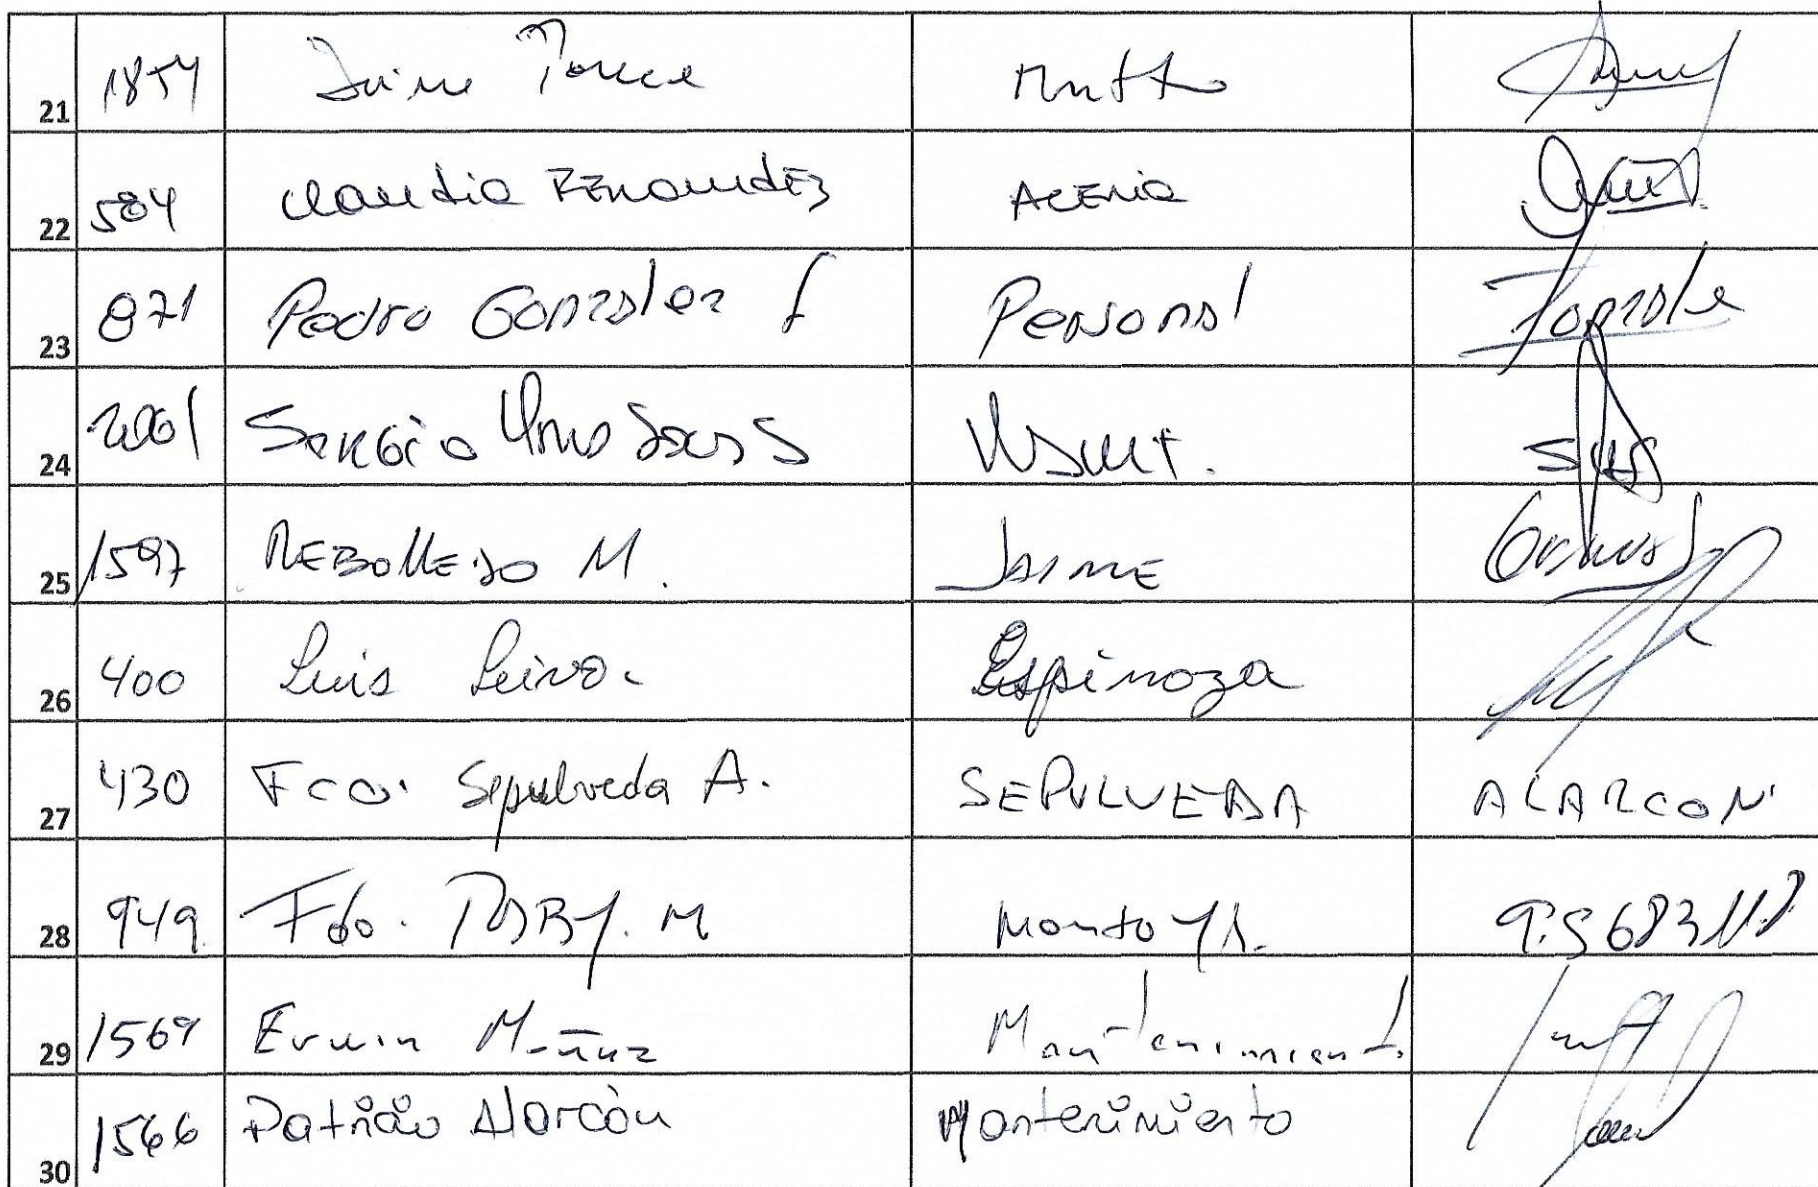 21 1854 Jaime Ponce Mntto
22 584 Claudio FERNANDEZ ACERIA
23 871 Pedro Gonzalez f Personal Gonzale
24 2001 SERGIO
25 1597 REBOLLEDO M. JAIME
26 400 Luis Leiva. Espinoza
27 430 Fco. Sepulveda A. SEPULVEDA ALARCON
28 949 Fdo. M Montoya.
29 1569 Erwin Muñoz Mantenimiento
30 1566 Patricio Alarcón Mantenimiento